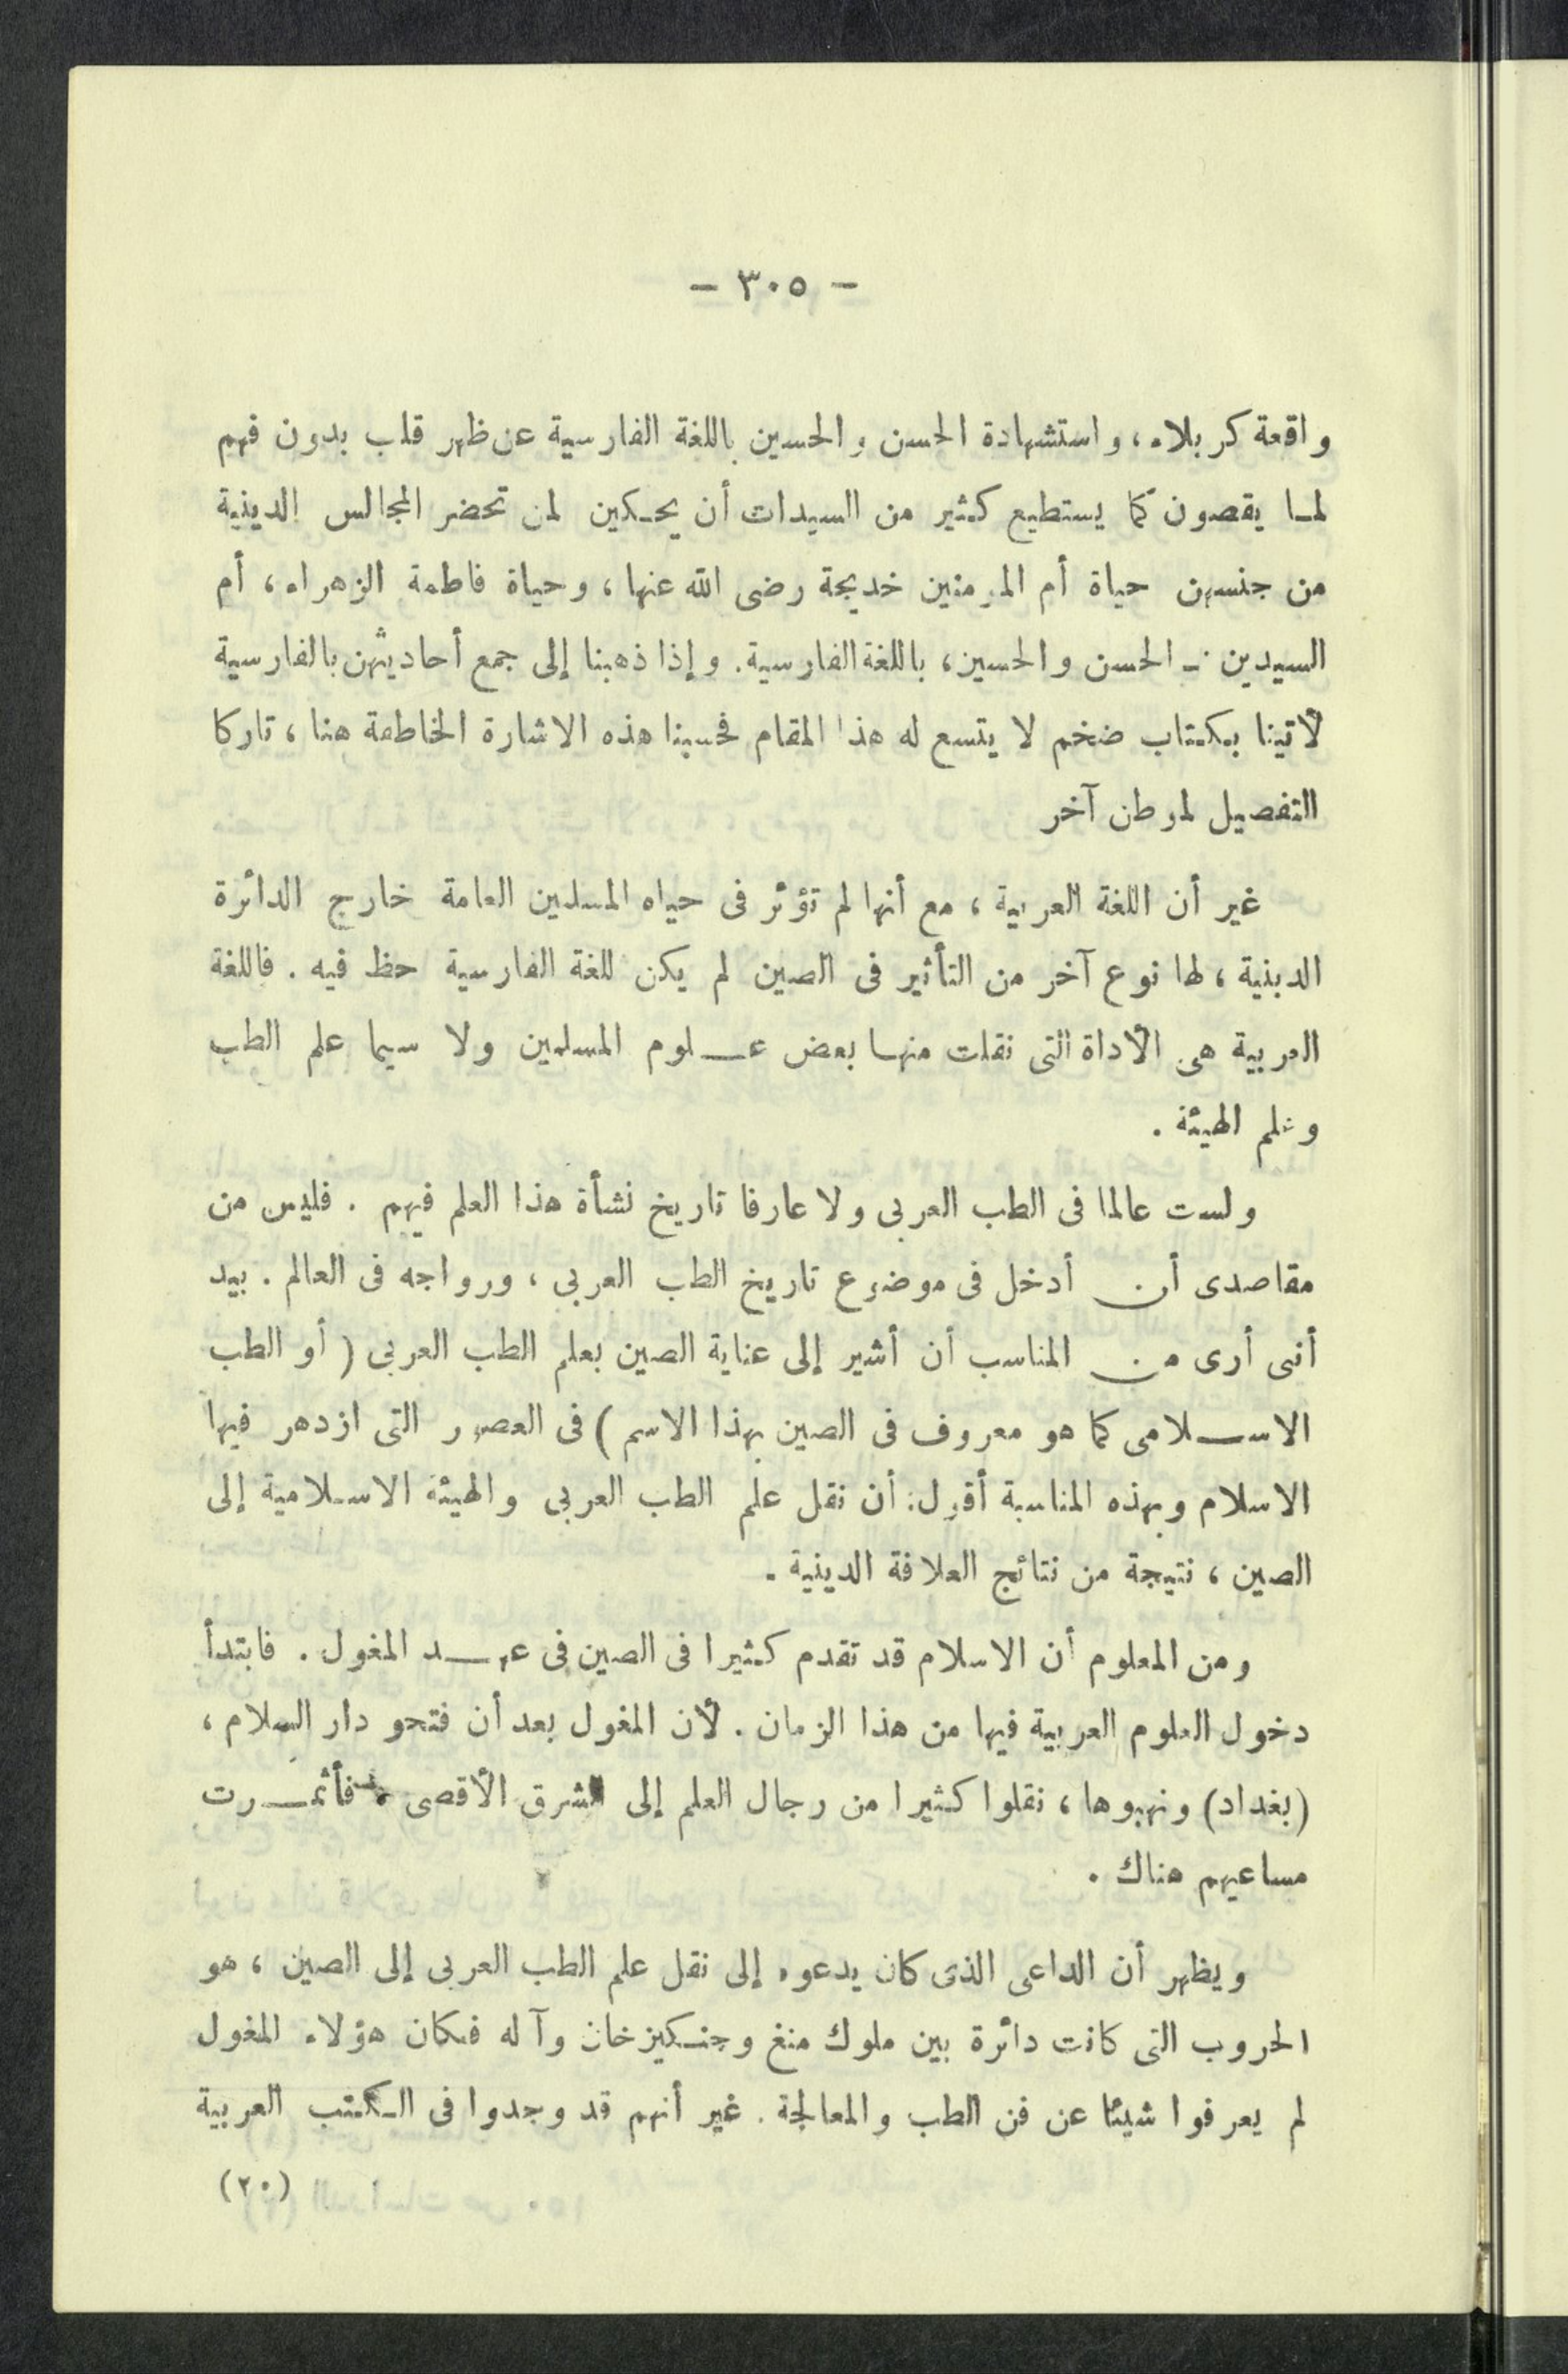 - ٣٠٥ -
واقعة كربلاء، واستشهادة الحسن والحسين باللغة الفارسية عن ظهر قلب بدون فهم
لما يقصون كما يستطيع كثير من السيدات أن يحكين لمن تحضر المجالس الدينية
من جنسهن حياة أم المؤمنين خديجة رضى الله عنها، وحياة فاطمة الزهراء، أم
السيدين - الحسن والحسين، باللغة الفارسية. وإذا ذهبنا إلى جمع أحاديثهن بالفارسية
لأتينا بكتاب ضخم لا يتسع له هذا المقام فحسبنا هذه الاشارة الخاطعة هنا، تاركا
التفصيل لموطن آخر
غير أن اللغة العربية، مع أنها لم تؤثر فى حياه المسلمين العامة خارج الدائرة
الدينية، لها نوع آخر من التأثير فى الصين لم يكن للغة الفارسية حظ فيه. فاللغة
العربية هى الأداة التى نقلت منها بعض علوم المسلمين ولا سيما علم الطب
وعلم الهيئة.
ولست عالما فى الطب العربى ولا عارفا تاريخ نشأة هذا العلم فيهم. فليس من
مقاصدى أن أدخل فى موضوع تاريخ الطب العربى، ورواجه فى العالم. بيد
أنى أرى من المناسب أن أشير إلى عناية الصين بعلم الطب العربى (أو الطب
الاسلامى كما هو معروف فى الصين بهذا الاسم) فى العصور التى ازدهر فيها
الاسلام وبهذه المناسبة أقول: أن نقل علم الطب العربى والهيئة الاسلامية إلى
الصين، نتيجة من نتائج العلاقة الدينية.
ومن المعلوم أن الاسلام قد تقدم كثيرا فى الصين فى عهد المغول. فابتدأ
دخول العلوم العربية فيها من هذا الزمان. لأن المغول بعد أن فتحو دار السلام،
(بغداد) ونهبوها، نقلوا كثيرا من رجال العلم إلى الشرق الأقصى، فأثمرت
مساعيهم هناك.
ويظهر أن الداعى الذى كان يدعوه إلى نقل علم الطب العربى إلى الصين، هو
الحروب التى كانت دائرة بين ملوك منغ وجنكيزخان وآله فكان هؤلاء المغول
لم يعرفوا شيئا عن فن الطب والمعالجة. غير أنهم قد وجدوا فى الكتب العربية
(٢٠)